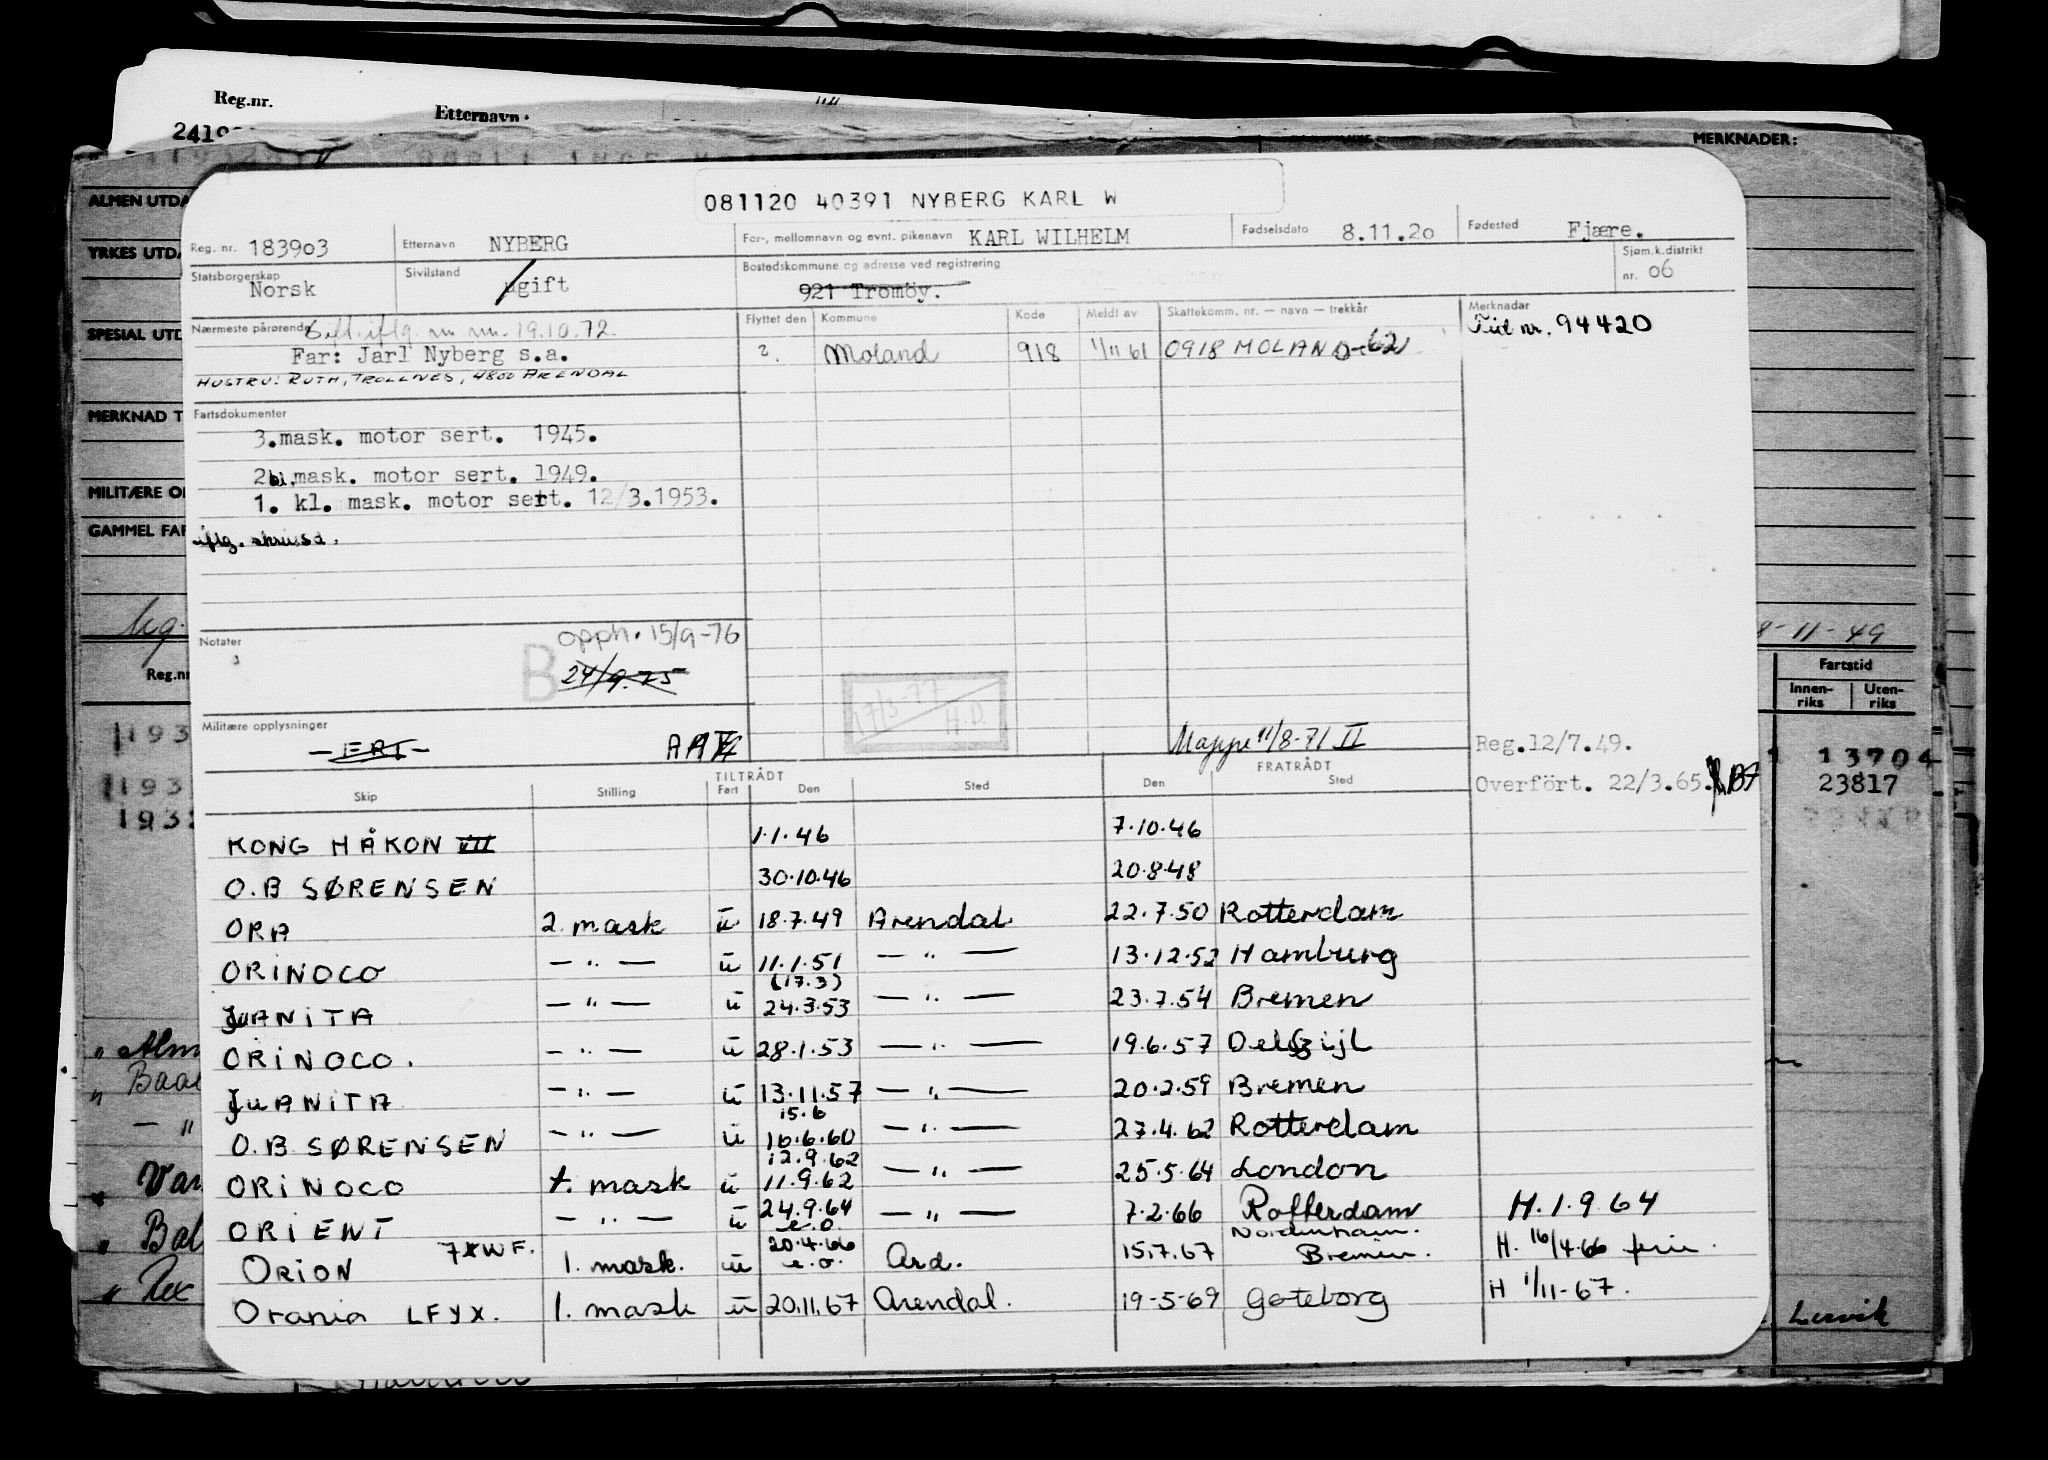 Reg.nr.
Etternavn
MERKNADER:
ALMEN UTDA
YRKES UTDA
SPESIAL UTD
MERKNAD T
MILITÆRE O
GAMMEL FAR
Reg.nr
081120 40391 NYBERG KARL W
Reg. nr. 183903 Etternavn NYBERG For-, mellomnavn og evnt. pikenavn KARL WILHELM Fødselsdato 8.11.20 Fødested Fjære.
Statsborgerskap Norsk Sivilstand gift Bostedskommune og adresse ved registrering 921 Tromøy. Sjøm.k.distrikt nr. 06
Nærmeste pårørende iflg. 19.10.72.
Far: Jarl Nyberg s.a.
HUSTRU: RUTH, TROLLNES, 4800 ARENDAL
Flyttet den Kommune Kode Meldt av Skattekomm. nr. — navn — trekkår Merknadar
?. Moland 918 1/11 61 0918 MOLAND-62 nr. 94420
Fartsdokumenter
3.mask. motor sert. 1945.
2 mask. motor sert. 1949.
1. kl. mask. motor sert. 12/3.1953.
iflg.
Notater
opph. 15/9-76
B 24/9.75
17/3-77
H.D.
Militære opplysninger
-ERT-
Mappe 11/8-71 II
Reg.12/7.49.
Overført. 22/3.65.
8-11-49
Fartstid
Innen-riks Uten-riks
13704
23817
TILTRÅDT FRATRÅDT
Skip Stilling Fart Den Sted Den Sted
KONG HÅKON VII 1.1.46 7.10.46
O.B SØRENSEN 30.10.46 20.8.48
ORA 2. mask ü 18.7.49 Arendal 22.7.50 Rotterdam
ORINOCO — " — ü 11.1.51 — " — 13.12.52 Hamburg
(17.3)
JUANITA — " — ü 24.3.53 — " — 23.7.54 Bremen
ORINOCO. — " — ü 28.1.53 — " — 19.6.57 Delfzijl
JUANITA — " — ü 13.11.57 — " — 20.2.59 Bremen
15.6
O.B. SØRENSEN — " — ü 16.6.60 — " — 27.4.62 Rotterdam
12.9.62
ORINOCO 1. mask ü 11.9.62 — " — 25.5.64 London
ORIENT — " — ü 24.9.64 e.o. — " — 7.2.66 Rotterdam H.1.9.64
Nordenham
ORION WF. 1. mask. ü 20.4.66 e.o. Ard. 15.7.67 Bremen. H. 16/4.66 ferie.
Orania LFYX. 1. mask ü 20.11.67 Arendal. 19-5-69 Gøteborg H 1/11-67.
Lervik